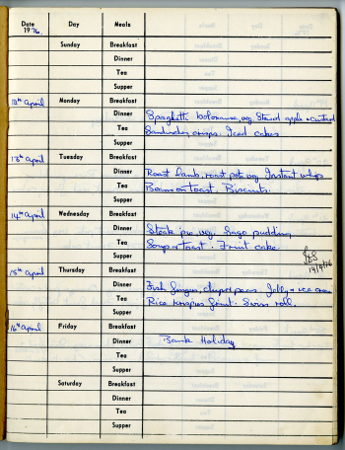 Date
1976
Day
Meals
Sunday
Breakfast
Dinner
Tea
Supper
12th April
Monday
Breakfast
Dinner
Spaghetti bolognese, veg Stewed apple + custard
Tea
Sandwiches crisps. Iced cakes
Supper
13th April
Tuesday
Breakfast
Dinner
Roast lamb, roast pots veg Instant whip
Tea
Beans on toast. Biscuits.
Supper
14th April
Wednesday
Breakfast
Dinner
Steak pie, veg. Sago pudding
Tea
Soup + toast. Fruit cake.
Supper
14/4/76
15th April
Thursday
Breakfast
Dinner
Fish fingers, chips + peas. Jelly + ice cream
Tea
Rice krispies fruit. Swiss roll.
Supper
16th April
Friday
Breakfast
Dinner
Bank Holiday
Tea
Supper
Saturday
Breakfast
Dinner
Tea
Supper